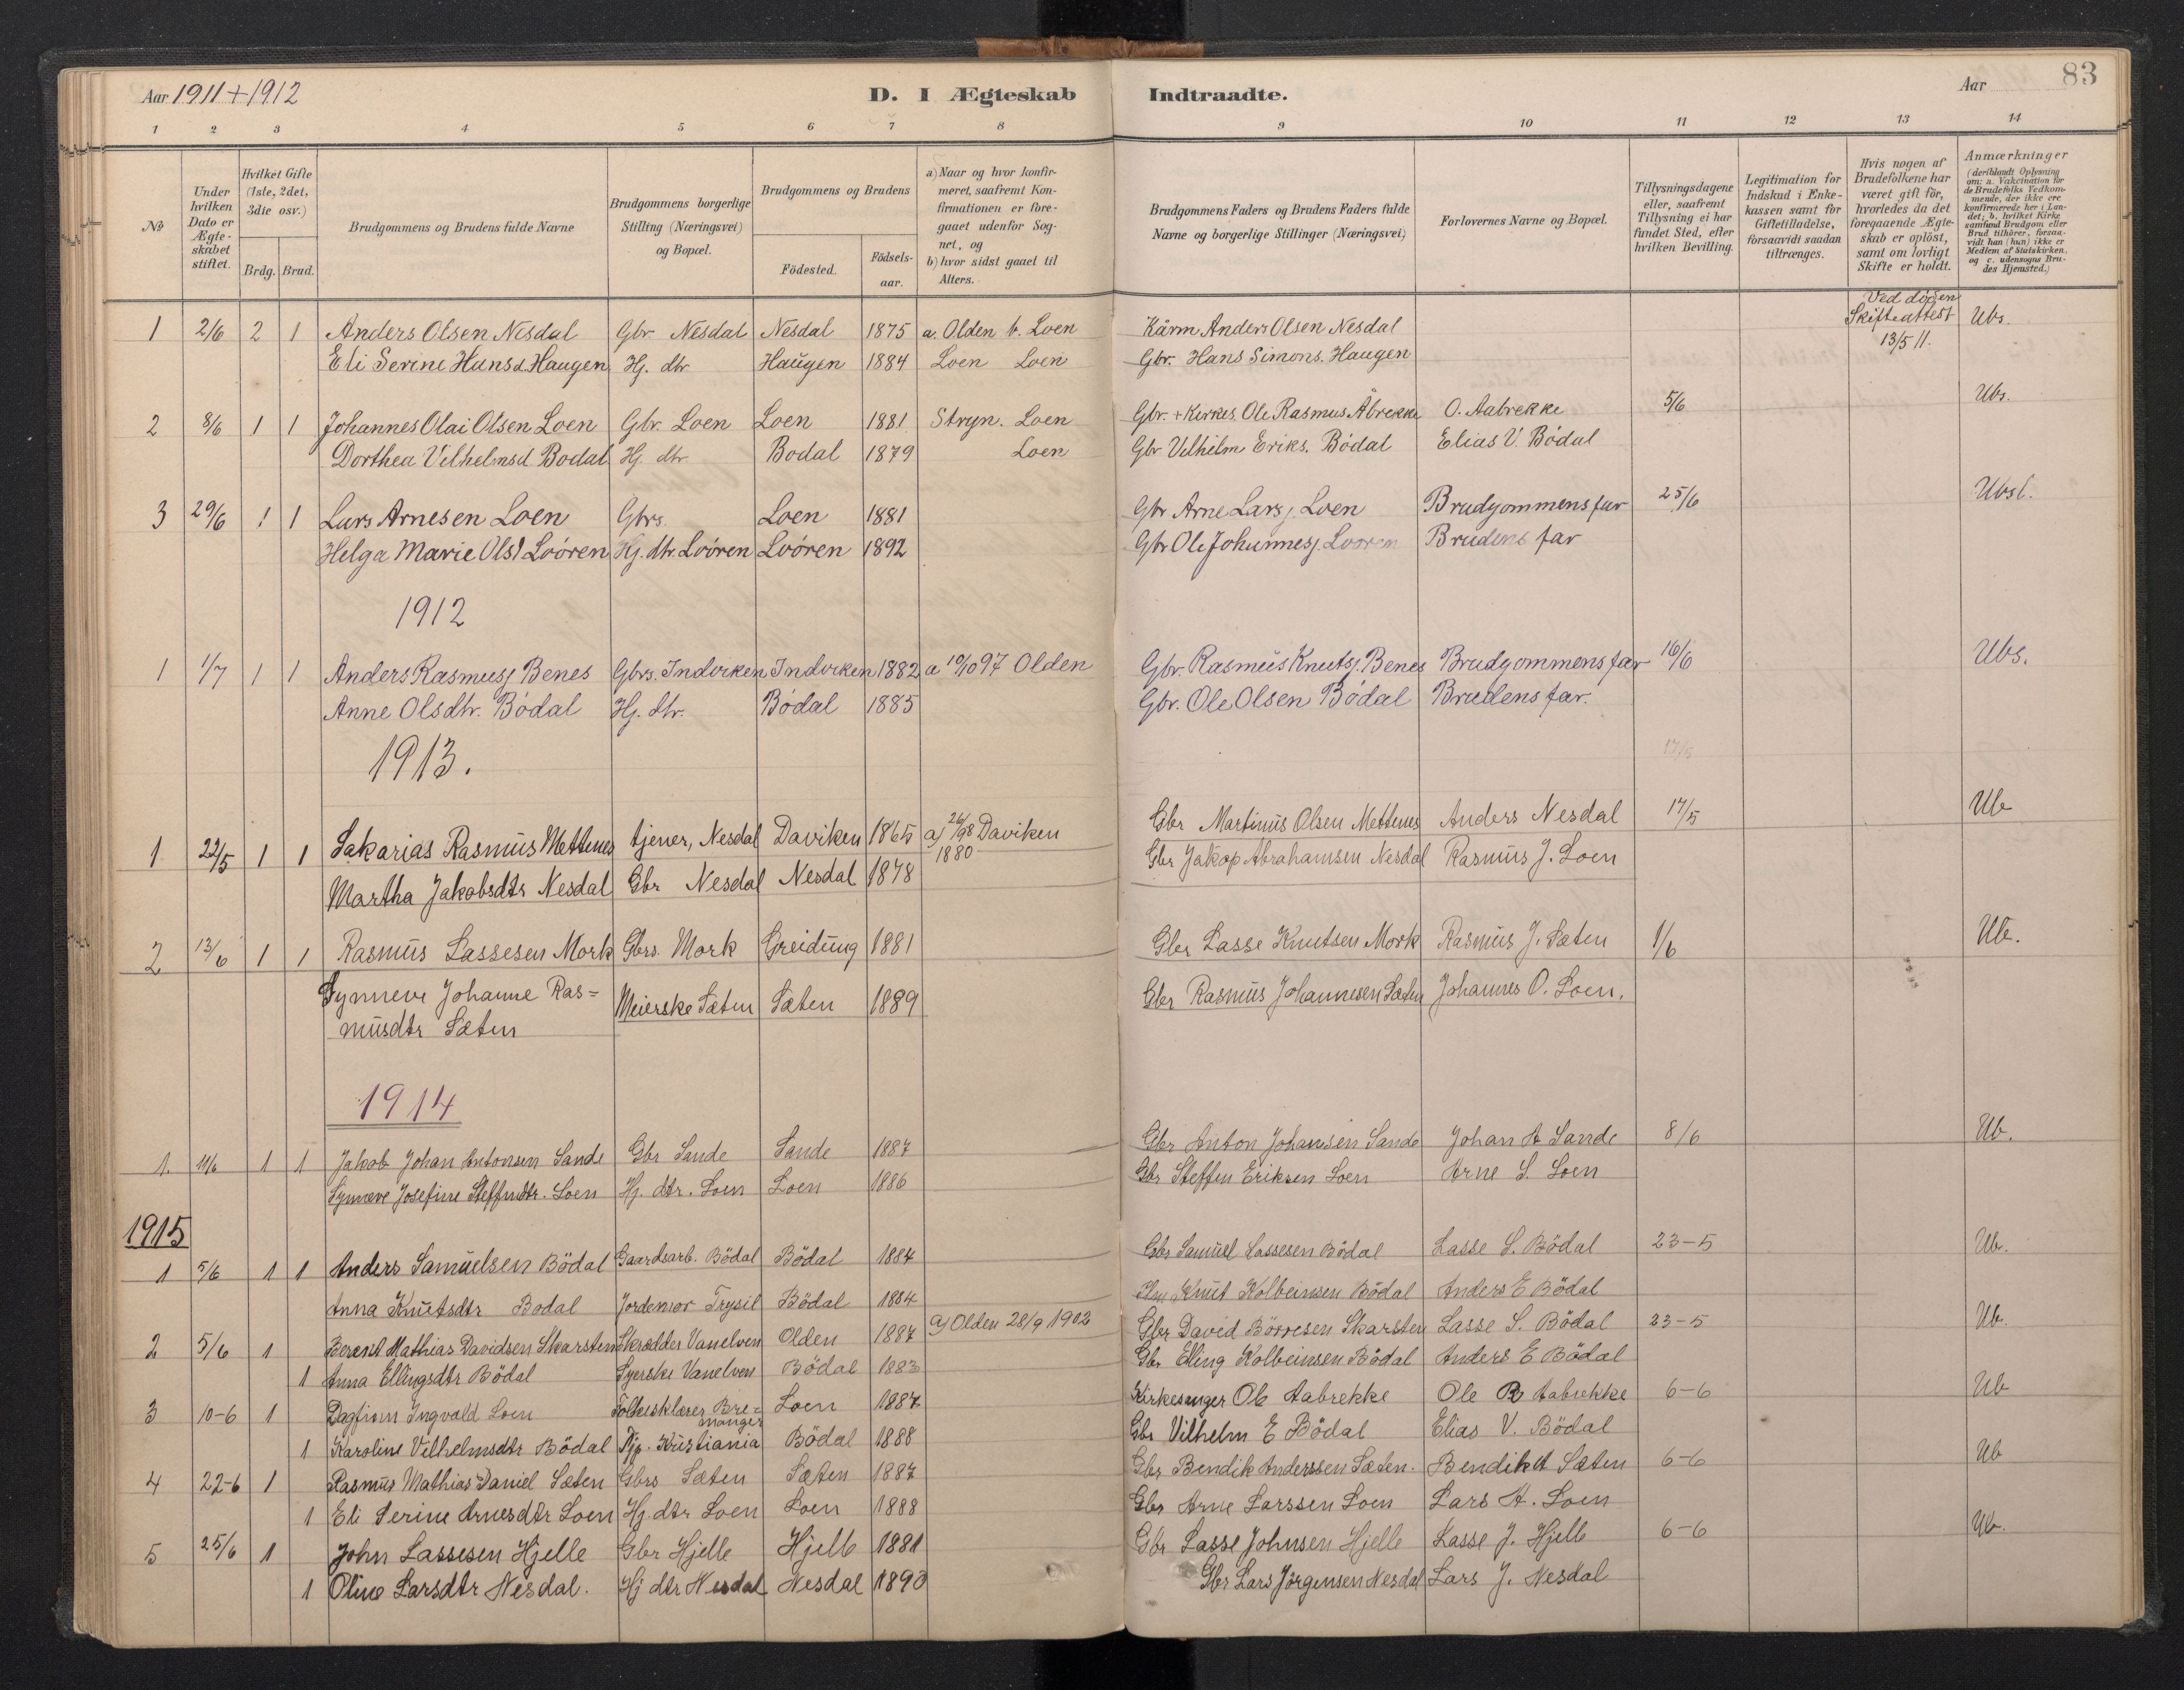 Aar 1911+1912 D. I Ægteskab Indtraadte. Aar 83
1 2 3 4 5 6 7 8 9 10 11 12 13 14
No
Under hvilken Dato er Ægteskabet stiftet.
Hvilket Gifte (1ste, 2det, 3die osv.)
Brdg. Brud.
Brudgommens og Brudens fulde Navne
Brudgommens borgerlige Stilling (Næringsvei) og Bopæl.
Brudgommens og Brudens
Födested. Födselsaar.
a) Naar og hvor konfirmeret, saafremt Konfirmationen er foregaaet udenfor Sognet, og
b) hvor sidst gaaet til Alters.
Brudgommens Faders og Brudens Faders fulde Navne og borgerlige Stillinger (Næringsvei)
Forlovernes Navne og Bopæl.
Tillysningsdagene eller, saafremt Tillysning ei har fundet Sted, efter hvilken Bevilling.
Legitimation for Indskud i Enkekassen samt for Giftetilladelse, forsaavidt saadan tiltrænges.
Hvis nogen af Brudefolkene har været gift för, hvorledes da det foregaaende Ægteskab er oplöst, samt om lovligt Skifte er holdt.
Anmærkninger (deriblandt Oplysning om: a. Vakcination for de Brudefolks Vedkommende, der ikke ere konfirmerede her i Landet; b. hvilket Kirkesamfund Brudgom eller Brud tilhörer, forsaavidt han (hun) ikke er Medlem af Statskirken, og c. udensogns Brudes Hjemsted.)
1 2/6 2 1 Anders Olsen Nesdal Gbr Nesdal Nesdal 1875 a. Olden b. Loen Kårm Anders Olsen Nesdal Ved döden Skifteattest 13/5 11. Ubs.
Eli Serine Hansd. Haugen Hj. dtr Haugen 1884 Loen Loen Gbr. Hans Simons. Haugen
2 8/6 1 1 Johannes Olai Olsen Loen Gbr. Loen Loen 1881 Stryn. Loen Gbr. + Kirkes. Ole Rasmus Åbrekke O. Aabrekke 5/6 Ubs.
Dorthea Vilhelmsd Bodal Hj. dtr Bodal 1879 Loen Gbr Vilhelm Eriks. Bödal Elias V. Bödal
3 29/6 1 1 Lars Arnesen Loen Gbrs. Loen 1881 Gbr Arne Larsj. Loen Brudgommens far 25/6 Ubsl.
Helga Marie Olsd Loören Hj. dtr. Loören Loören 1892 Gbr Ole Johannesj. Looren Brudens far
1912
1 1/7 1 1 Anders Rasmusj Benes Gbrs. Indviken Indviken 1882 a 10/10 97 Olden Gbr. Rasmus Knutsj. Benes Brudgommens far 16/6 Ubs.
Anne Olsdtr. Bödal Hj. dtr. Bödal 1885 Gbr. Ole Olsen Bödal Brudens far.
1913. 17/5
1 22/5 1 1 Sakarias Rasmus Mettenes tjener, Nesdal Daviken 1865 a) 26/98 Daviken 1880 Gbr Martinus Olsen Mettenes Anders Nesdal 17/5 Ub
Martha Jakobsdtr Nesdal Gbr Nesdal Nesdal 1878 Gbr Jakop Abrahamsen Nesdal Rasmus J. Loen
2 13/6 1 1 Rasmus Lassesen Mork Gbrs. Mork Greidung 1881 Gbr Lasse Knutsen Mork Rasmus J. Sæten 1/6 Ub.
Synneve Johanne Ras=
musdtr Sæten Meierske Sæten Sæten 1889 Gbr Rasmus Johannesen Sæten Johannes O. Loen.
1914
1. 11/6 1 1 Jakob Johan Antonsen Sande Gbr Sande Sande 1887 Gbr Anton Johansen Sande Johan A Sande 8/6 Ub.
Synneve Josefine Steffendtr. Loen Hj. dtr. Loen Loen 1886 Gbr Steffen Eriksen Loen Arne S. Loen
1915
1 5/6 1 1 Anders Samuelsen Bödal Gaardsarb. Bödal Bödal 1884 Gbr Samuel Lassesen Bödal Lasse S. Bödal 23-5 Ub.
Anna Knutsdtr Bodal Jordemor Trysil Bödal 1884 Knut Kolbeinsen Bödal Anders E Bödal
2 5/6 1 Berent Mathias Davidsen Skarsten Skrædder Vanelven Olden 1887 a) Olden 28/9 1902 Gbr David Börresen Skarsten Lasse S. Bödal 23-5 Ub.
1 Anna Ellingsdtr Bödal Syerske Vanelven Bödal 1883 Gbr Elling Kolbeinsen Bödal Anders E Bödal
3 10-6 1 Dagfinn Ingvald Loen Folkesklærer Bre=
manger Loen 1887 Kirkesanger Ole Aabrekke Ole R Aabrekke 6-6 Ub
1 Karoline Vilhelmsdtr Bödal Tjp. Kristiania Bödal 1888 Gbr Vilhelm E Bödal Elias V. Bödal
4 22-6 1 Rasmus Mathias Daniel Sæten Gbrs Sæten Sæten 1887 Gbr Bendik Anderssen Sæten. Bendik A Sæten 6-6 Ub
1 Eli Serine Arnesdtr Loen Hj. dtr Loen Loen 1888 Gbr Arne Larssen Loen Lars A. Loen
5 25/6 1 John Lassesen Hjelle Gbr Hjelle Hjelle 1881 Gbr Lasse Johnsen Hjelle Lasse J. Hjelle 6-6 Ub.
1 Oline Larsdtr Nesdal. Hj dtr Nesdal Nesdal 1890 Gbr Lars Jörgensen Nesdal Lars J. Nesdal